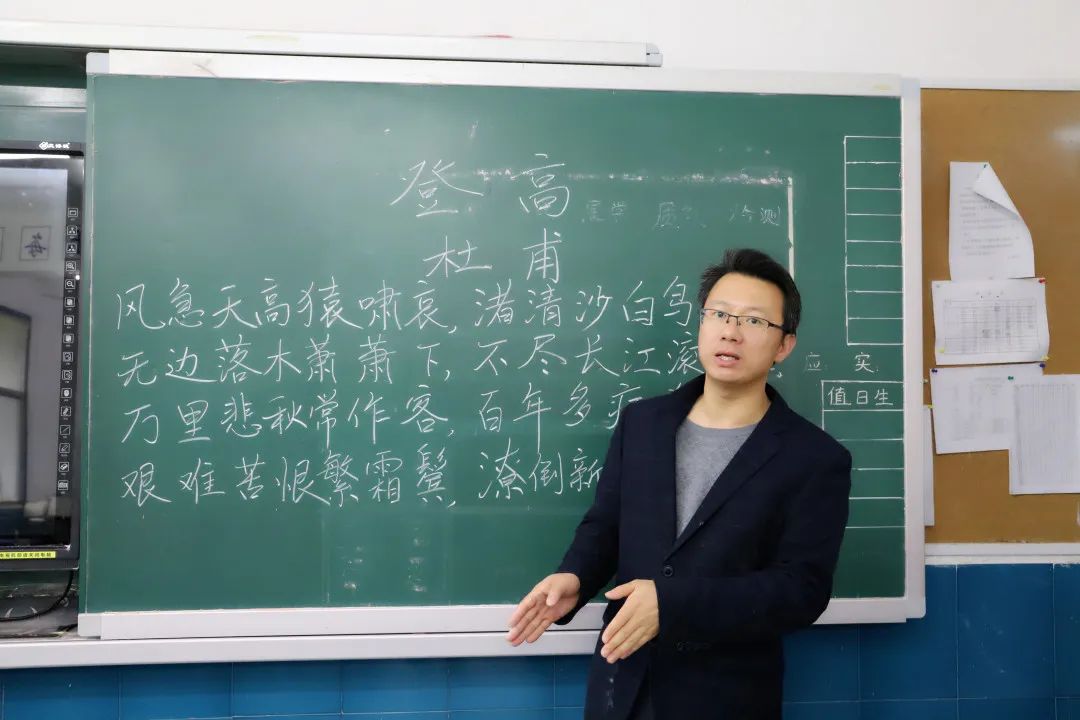 登高
杜甫
风急天高猿啸哀,渚清沙白鸟
无边落木萧萧下,不尽长江滚
万里悲秋常作客,百年多病
艰难苦恨繁霜鬓,潦倒新
应: 实:
值日生